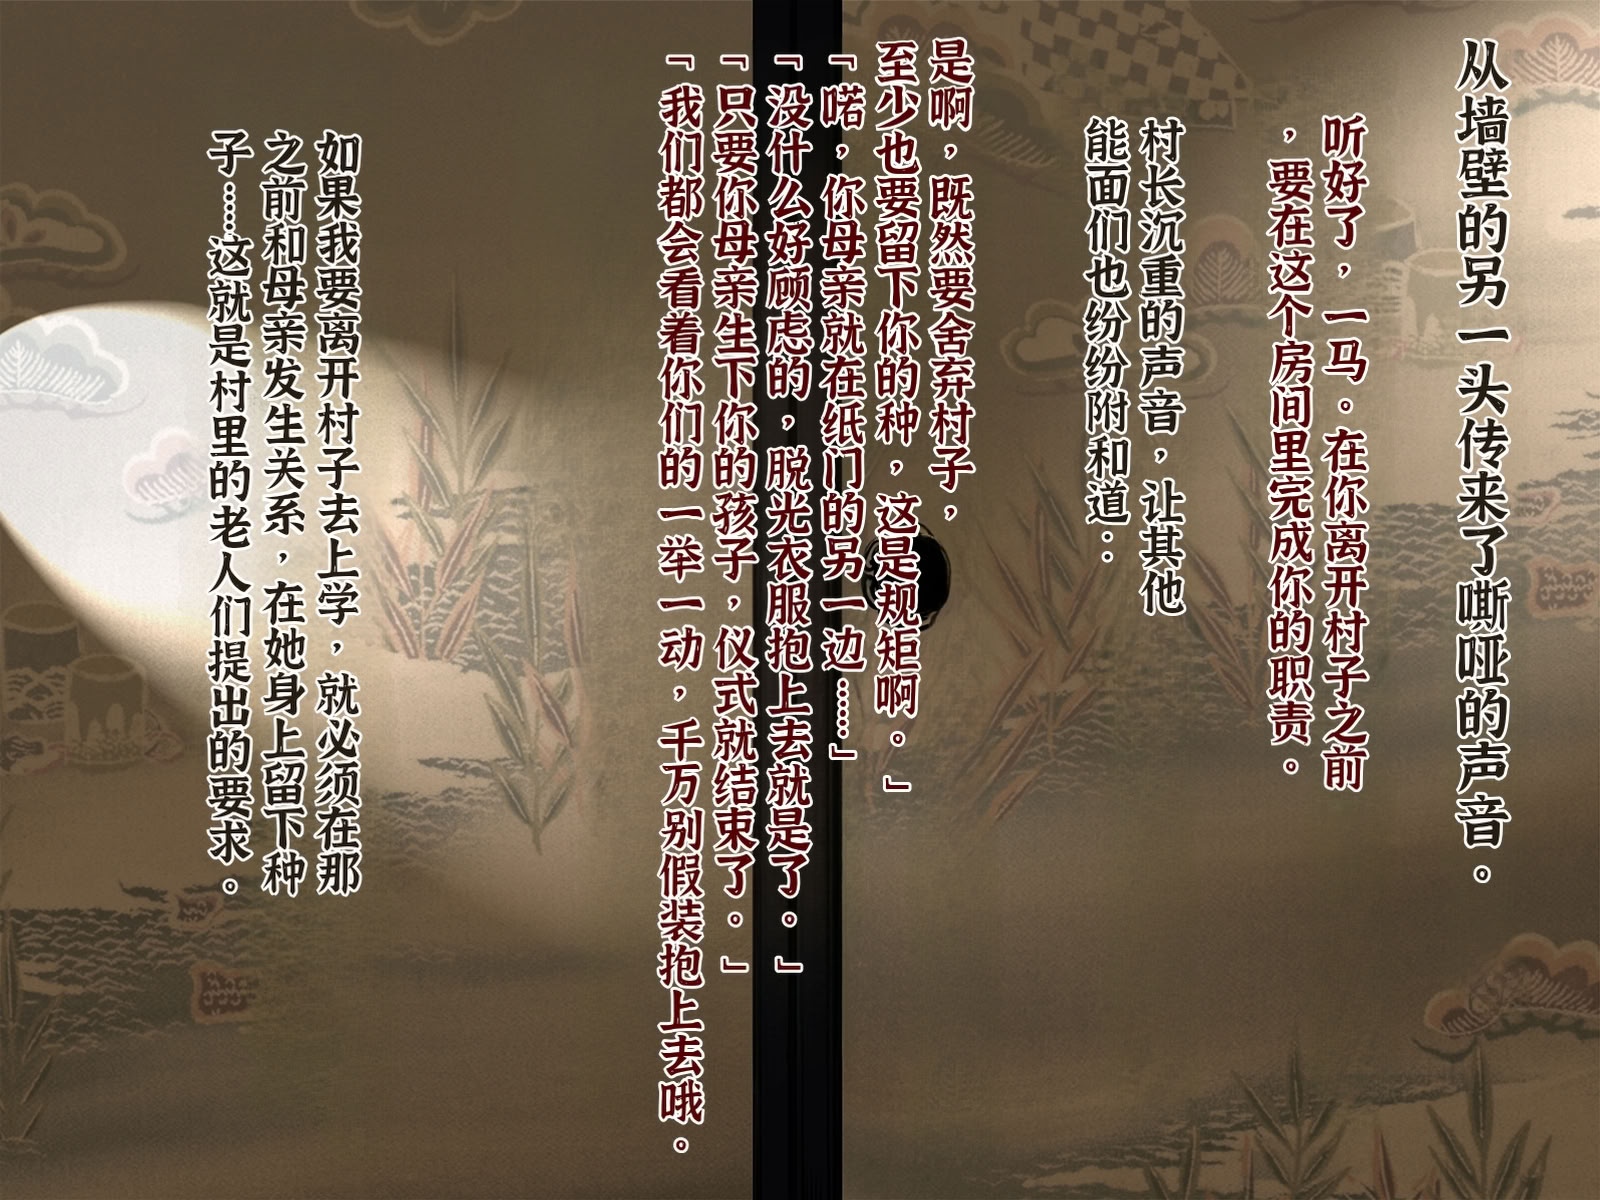 从墙壁的另一头传来了嘶哑的声音。
听好了，一马。在你离开村子之前
，要在这个房间里完成你的职责。
村长沉重的声音，让其他
能面们也纷纷附和道：
是啊，既然要舍弃村子，
至少也要留下你的种，这是规矩啊。」
「喏，你母亲就在纸门的另一边……」
「没什么好顾虑的，脱光衣服抱上去就是了。」
「只要你母亲生下你的孩子，仪式就结束了。」
「我们都会看着你们的一举一动，千万别假装抱上去哦。
如果我要离开村子去上学，就必须在那
之前和母亲发生关系，在她身上留下种
子……这就是村里的老人们提出的要求。